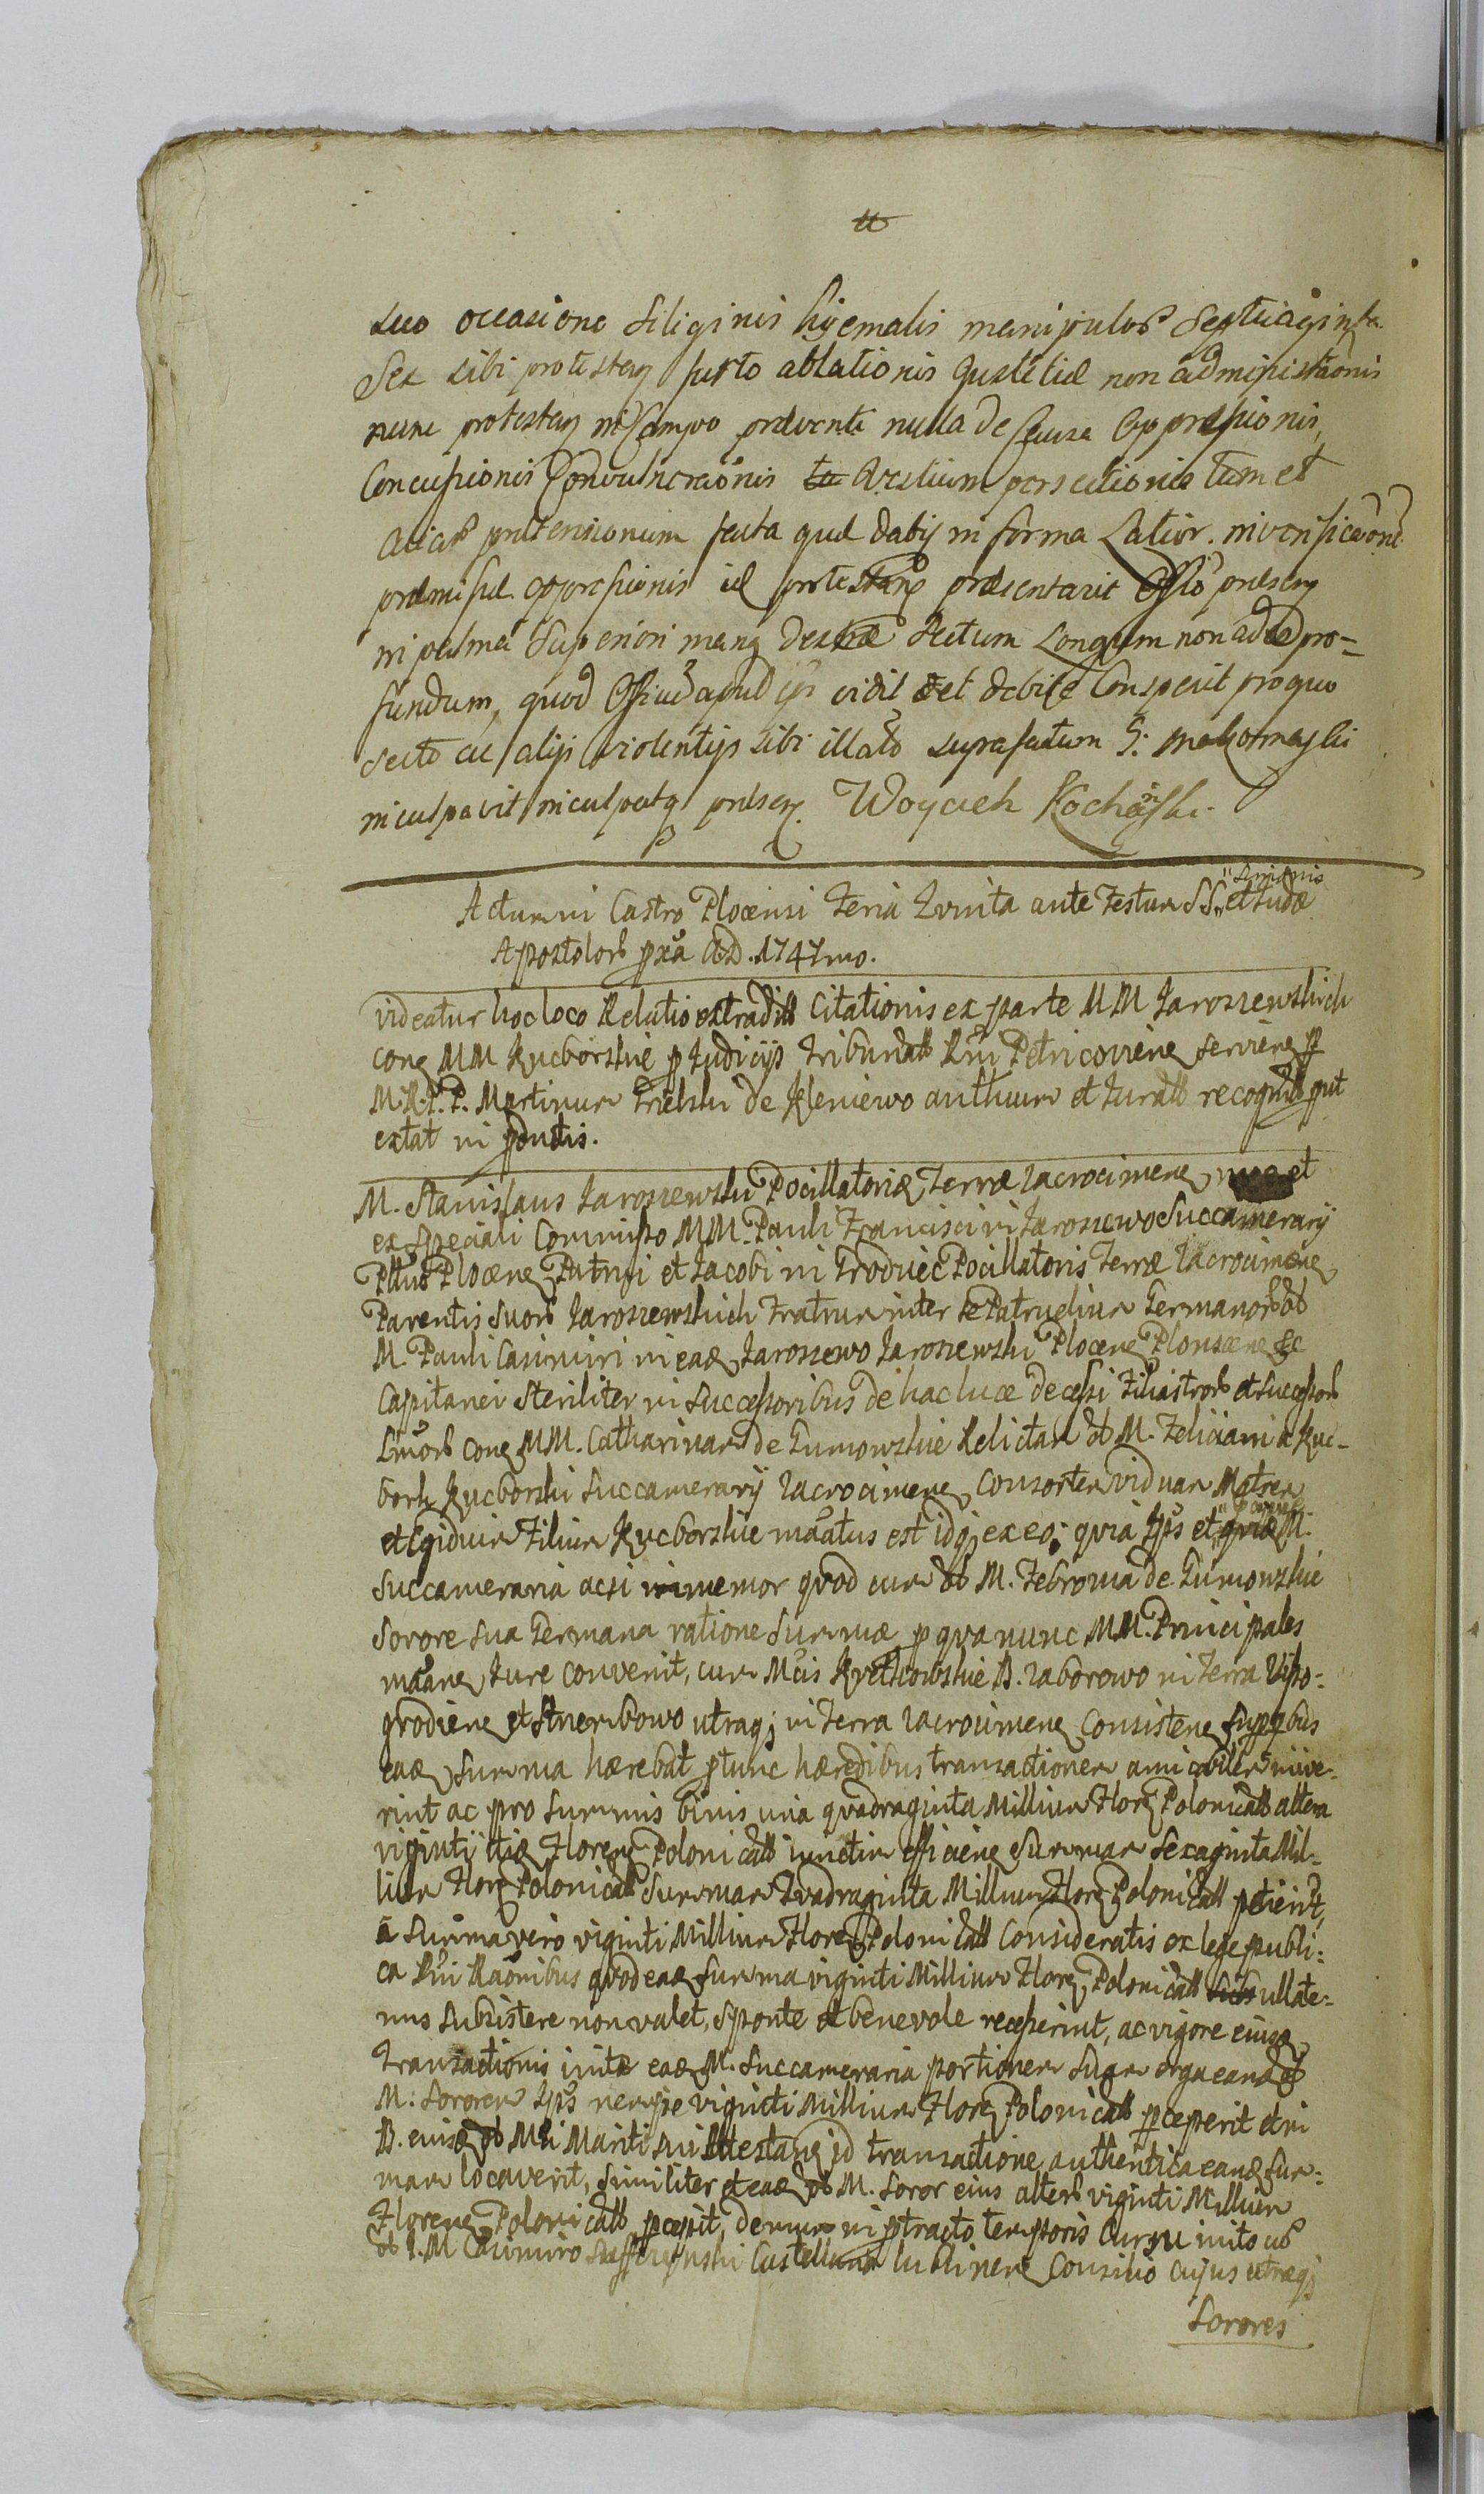 suo occasione siliginis hyemalis manipulos septuaginta
sex sibi protestan furto ablationis Justitiæ non administraonis
nunc protestan in Campo prævente nulla de causa oppressionis,
Concussionis Convulneraonis Vestium percutionis tum et
aliar prætensionum facta quæ datis in forma Latior. in verificaone
præmissæ oppressionis id protestans præsentavit Offio præsen
in palma superiori manus dextræ sectum Longum non adeo pro=
fundum, quod Offium apud ipm vidit et debite Conspexit pro quo
secto ac alijs violentijs sibi illato suprafatum G:
inculpavit inculpatq præsen. Woyciech Kochański.
Actum in Castro Plocensi Feria Quinta ante Festum SS. "Simonis" et Judæ
Apostolorum pxa AD. 1747mo.
videatur hoc loco Relatio extradit Citationis ex parte MM Jaroszewskich
cone MM Kucborskie p Judicijs Tribunal Rni Petricoviene serviene p
M.R.P.P. Martinum de Kleniewo authum et Jurat recognit put
extat in pdutis.
M. Stanislaus Jaroszewski Pocillatoria Terræ Zacrocimene et
ex speciali Commisso MM. Pauli Francisci in Jaroszewo Succamerarij
Pttus Plocene Patrui et Jacobi in Pocillatoris Terræ Zacrocimene
Parentis suor Jaroszewskich Fratrum inter se Patruelium Germanor ob
M. Pauli Casimiri in ead Jaroszewo Jaroszewski Plocene Plonscene &c
Capitanei steriliter in successoribus de hac luce decessi Filiastror et successor
cone MM. Catharinam de Gumowskie Relictam ob M. Feliciani a Kuc-
bork Kucborski Succamerarij Zacrocimene Consortem viduam Matrem
et Egidium Filium Kucborskie maatus est idq ex eo; quia Ips et M.
Succameraria acsi immemor quod cum ob M. Febronia de Gumowskie
Sorore sua Germana ratione summæ p qva nunc MM. Principales
maane Jure convenit, cum Mcis Kretkowskie B. Zaborowo in Terra Viso=
grodiene et utraq in Terra Zacrocimene Consistene sup qbus
ead summa hærebat ptunc hæredibus transactionem amicabiler inive=
rint ac pro summis binis una quadraginta Millium Flor Polonical altera
viginti Flore Polonical iunctim efficiene Summam sexaginta Mil=
lium Flor Polonical Summam Quadraginta Millium Flor Polonical petierit,
a summa vero viginti Millium Flor Polonical Consideratis ex lege publi=
ca Rni Raonibus quod ead summa viginti Millium Flor Polonical ullate=
nus subsistere non valet, sponte et benevole recesserint, ac vigore eiusd
Transactionis initæ ead M. Succameraria portionem suam erga eand
M: Sororem Ips nempe viginti Millium Flor Polonical pceperit et in
B. eiusd ob Mci Mariti sui Attestane id transactione authentica eand sum=
mam locaverit, similiter et ead ob M. Soror eius alter viginti Millium
Florene Polonical pcepit, demum in ptracto temporis cursu inito
ob I.M Casimiro Castellano lublinene Consilio cujus utræq
Sorores